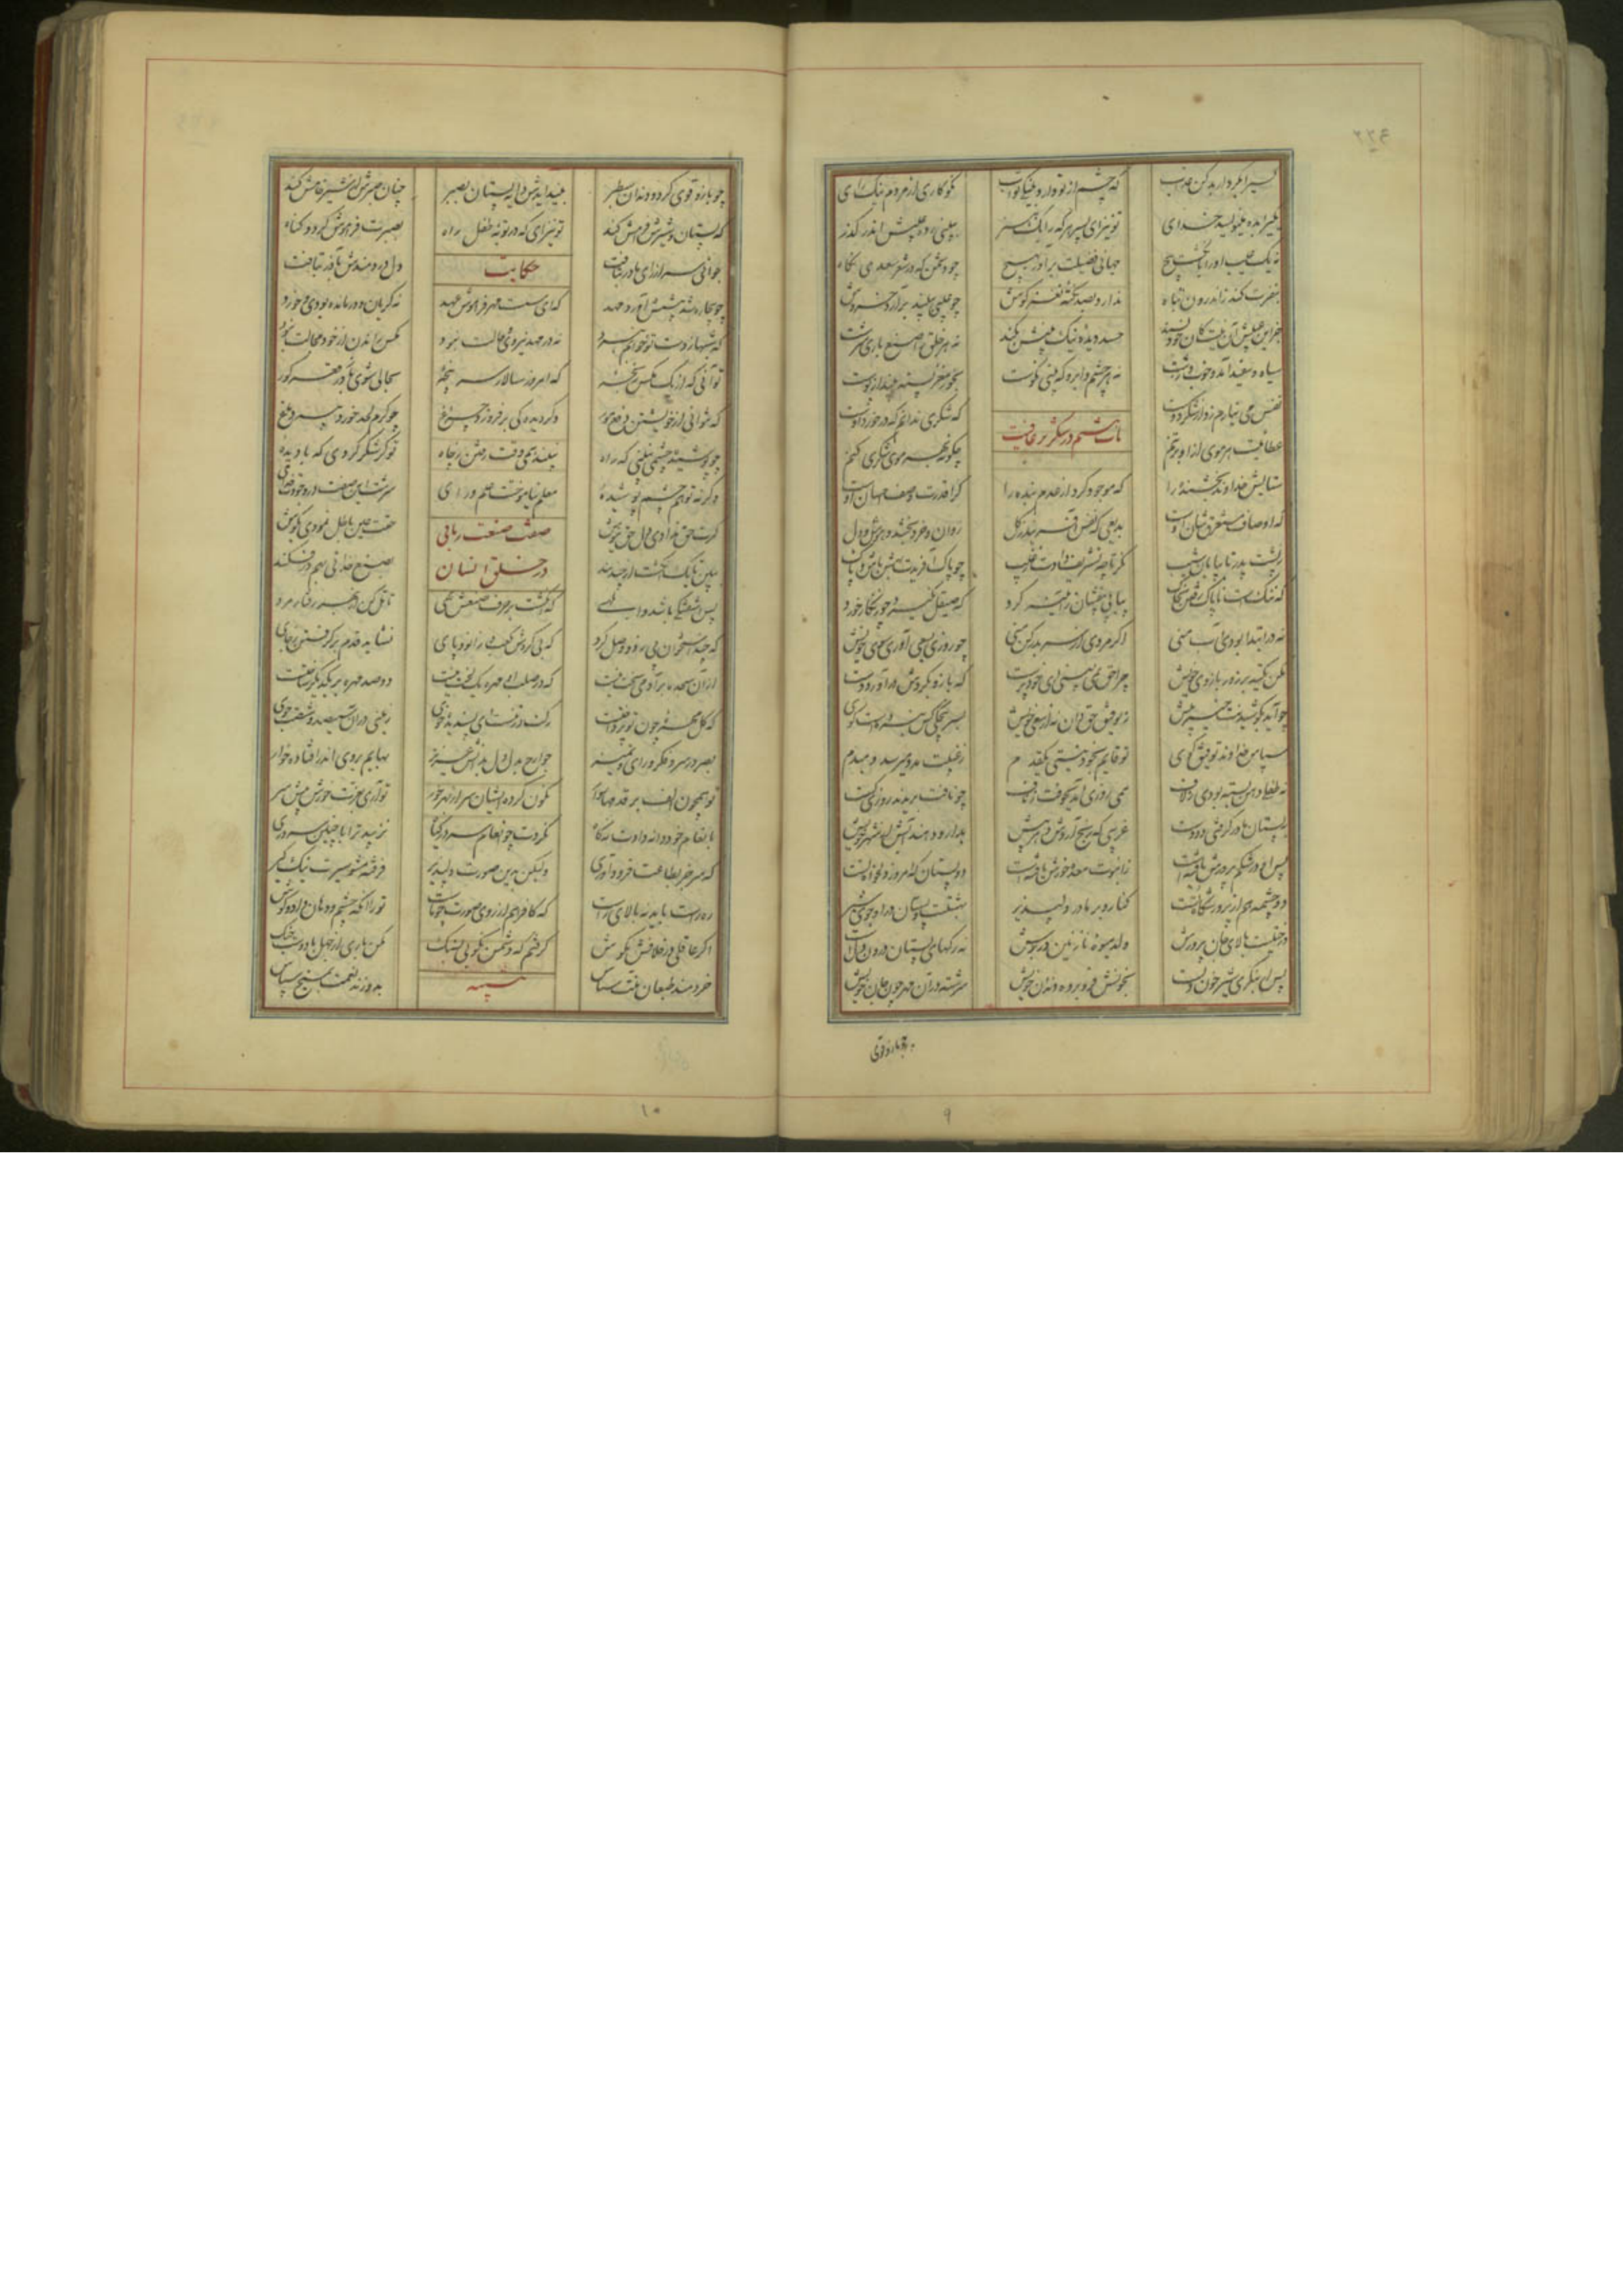 که چشم از تو دارد به نیکی ثواب نکوکاری از مردم نیک رای
تو نیز ای پسر هر که را یک هنر ببینی ز ده عیبش اندر گذر
نه یک عیب او را بر انگشت پیچ جهانی فضیلت برآور بهیچ چو دشمن که در شعر سعدی نگاه
بنفرت کند ز اندرون تباه ندارد بصد نکته نغز گوش برآرد خروش
حسد دیده نیک بینش بکند نه مر خلق را صنع باری سرشت
سیاه و سفید آمد و خوب و زشت نه هر چشم و ابرو که بینی نکوست بخور مغز پسته بینداز پوست
باب هشتم در شکر بر عافیت
نفس می نیارم زد از شکر دوست که شکری ندانم که در خورد اوست
عطاییست هر موی ازو بر تنم چگونه بهر موی شکری کنم
ستایش خداوند بخشنده را که موجود کرد از عدم بنده را کرا قدرت وصف احسان اوست
که اوصاف مستغرق شان اوست بدیعی که شخص آفریند ز گل روان و خرد بخشد و هوش و دل
ز پشت پدر تا بپایان شیب نگر تا چه تشریف دادت ز غیب چو پاک آفریدت بهش باش و پاک
که ننگ است ناپاک رفتن بخاک بیفشان از آیینه گرد که صیقل نگیرد چو زنگار خورد
نه در ابتدا بودی آب منی اگر مردی از سر بدر کن منی چو روزی بسعی آوری سوی خویش
مکن تکیه بر زور بازوی خویش چرا حق نمی بینی ای خودپرست که بازو بگردش درآورد و دست
چو آید بکوشیدنت خیر پیش ز توفیق حق دان نه از سعی خویش بسرپنجگی کس نبردست گوی
سپاس خداوند توفیق گوی تو قایم بخود نیستی یکقدم ز غیبت مدد میرسد دمبدم
نه طفل دهن بسته بودی ز لاف همی روزی آمد بجوفت ز ناف چو نافت بریدند روزی گسست
بپستان مادر در آویخت دست غریبی که رنج آردش دهر پیش بدارو دهند آبش از شهر خویش
پس او در شکم پرورش یافته است ز انبوب معده خورش یافته است دو پستان که امروز دلخواه اوست
دو چشمه هم از پرورشگاه اوست کنار و بر مادر دلپذیر بهشتست و پستان درو جوی شیر
درختیست بالای جان پرورش ولد میوه نازنین در برش نه رگهای پستان درون دل است
پس ار بنگری شیر خون دل است بخونش فرو برده دندان خویش سرشته در آن مهر خون خویش
چو بازو قوی
۹
چو بازو قوی کرد و دندان سطبر بینداید ش دایه پستان بصبر چنان صبرش از شیر خامش کند
که پستان و شیرش فرامش کند تو نیز ای که در توبه طفل راه بصبرت فراموش گردد گناه
حکایت
جوانی سر از رای مادر بتافت دل دردمندش بآذر بتافت
چو بیچاره شد پیشش آورد مهد که ای سست مهر فراموش عهد نه گریان و درمانده بودی و خرد
که شبها ز دست تو خوابم نبرد نه در مهد نیروی حالت نبود مگس راندن از خود مجالت نبود
تو آنی که از یک مگس رنجه که امروز سالار سر پنجه بحالی شوی باز در قعر گور
که نتوانی از خویشتن دفع مور دگر دیده کی برفروزد چراغ چو کرم لحد خورد پیه دماغ
چو پوشیده چشمی ببینی که راه نبیند همی وقت رفتن ز چاه تو گر شکر کردی که با دیده
وگرنه تو هم چشم پوشیده معلم نیاموخت علم و رای سرشت این صفت در وجودت خدای
گرت حق ندادی دل حق نیوش حقت عین باطل نمودی بگوش
صفت صنعت ربانی
در خلق انسان
ببین تا یک انگشت از چند بند بصنع خدایی بهم در فکند
پس آشفتگی باشد و ابلهی که انگشت بر حرف صنعش نهی تامل کن از بهر رفتار مرد
که چند استخوان پی زد و وصل کرد که بی گردش کعب و زانو و پای نشاید قدم بر گرفتن ز جای
از آن سجده بر آدمی سخت نیست که در صلب او مهره یک لخت نیست دو صد مهره بر یکدیگر ساختست
که گل مهره چون تو پرداختست رگت در تنست ای پسندیده خوی زمینی در آن سیصد و شصت جوی
بصر در سر و فکر و رای و تمیز جوارح بدل دل بدانش عزیز بهایم بروی اندر افتاده خوار
تو همچون الف بر قدمها سوار نگون کرده ایشان سر از بهر خور تو آری بعزت خورش پیش سر
نزیبد ترا با چنین سروری
بانعام خود دانه دادت نه کاه نکردت چو انعام سر در گیاه
که سر جز بطاعت فرود آوری ولیکن بدین صورت دلپذیر فرفته مشو سیرت نیک گیر
ره راست باید نه بالای راست که کافر هم از روی صورت چو ماست تو را آنکه چشم و دهان داد و گوش
اگر عاقلی در خلافش مکوش گرفتم که دشمن بکوبی بسنگ مکن باری از جهل با دوست جنگ
خردمند طبعان منت شناس بدوزند نعمت بمیخ سپاس
تنبیه
۱۰